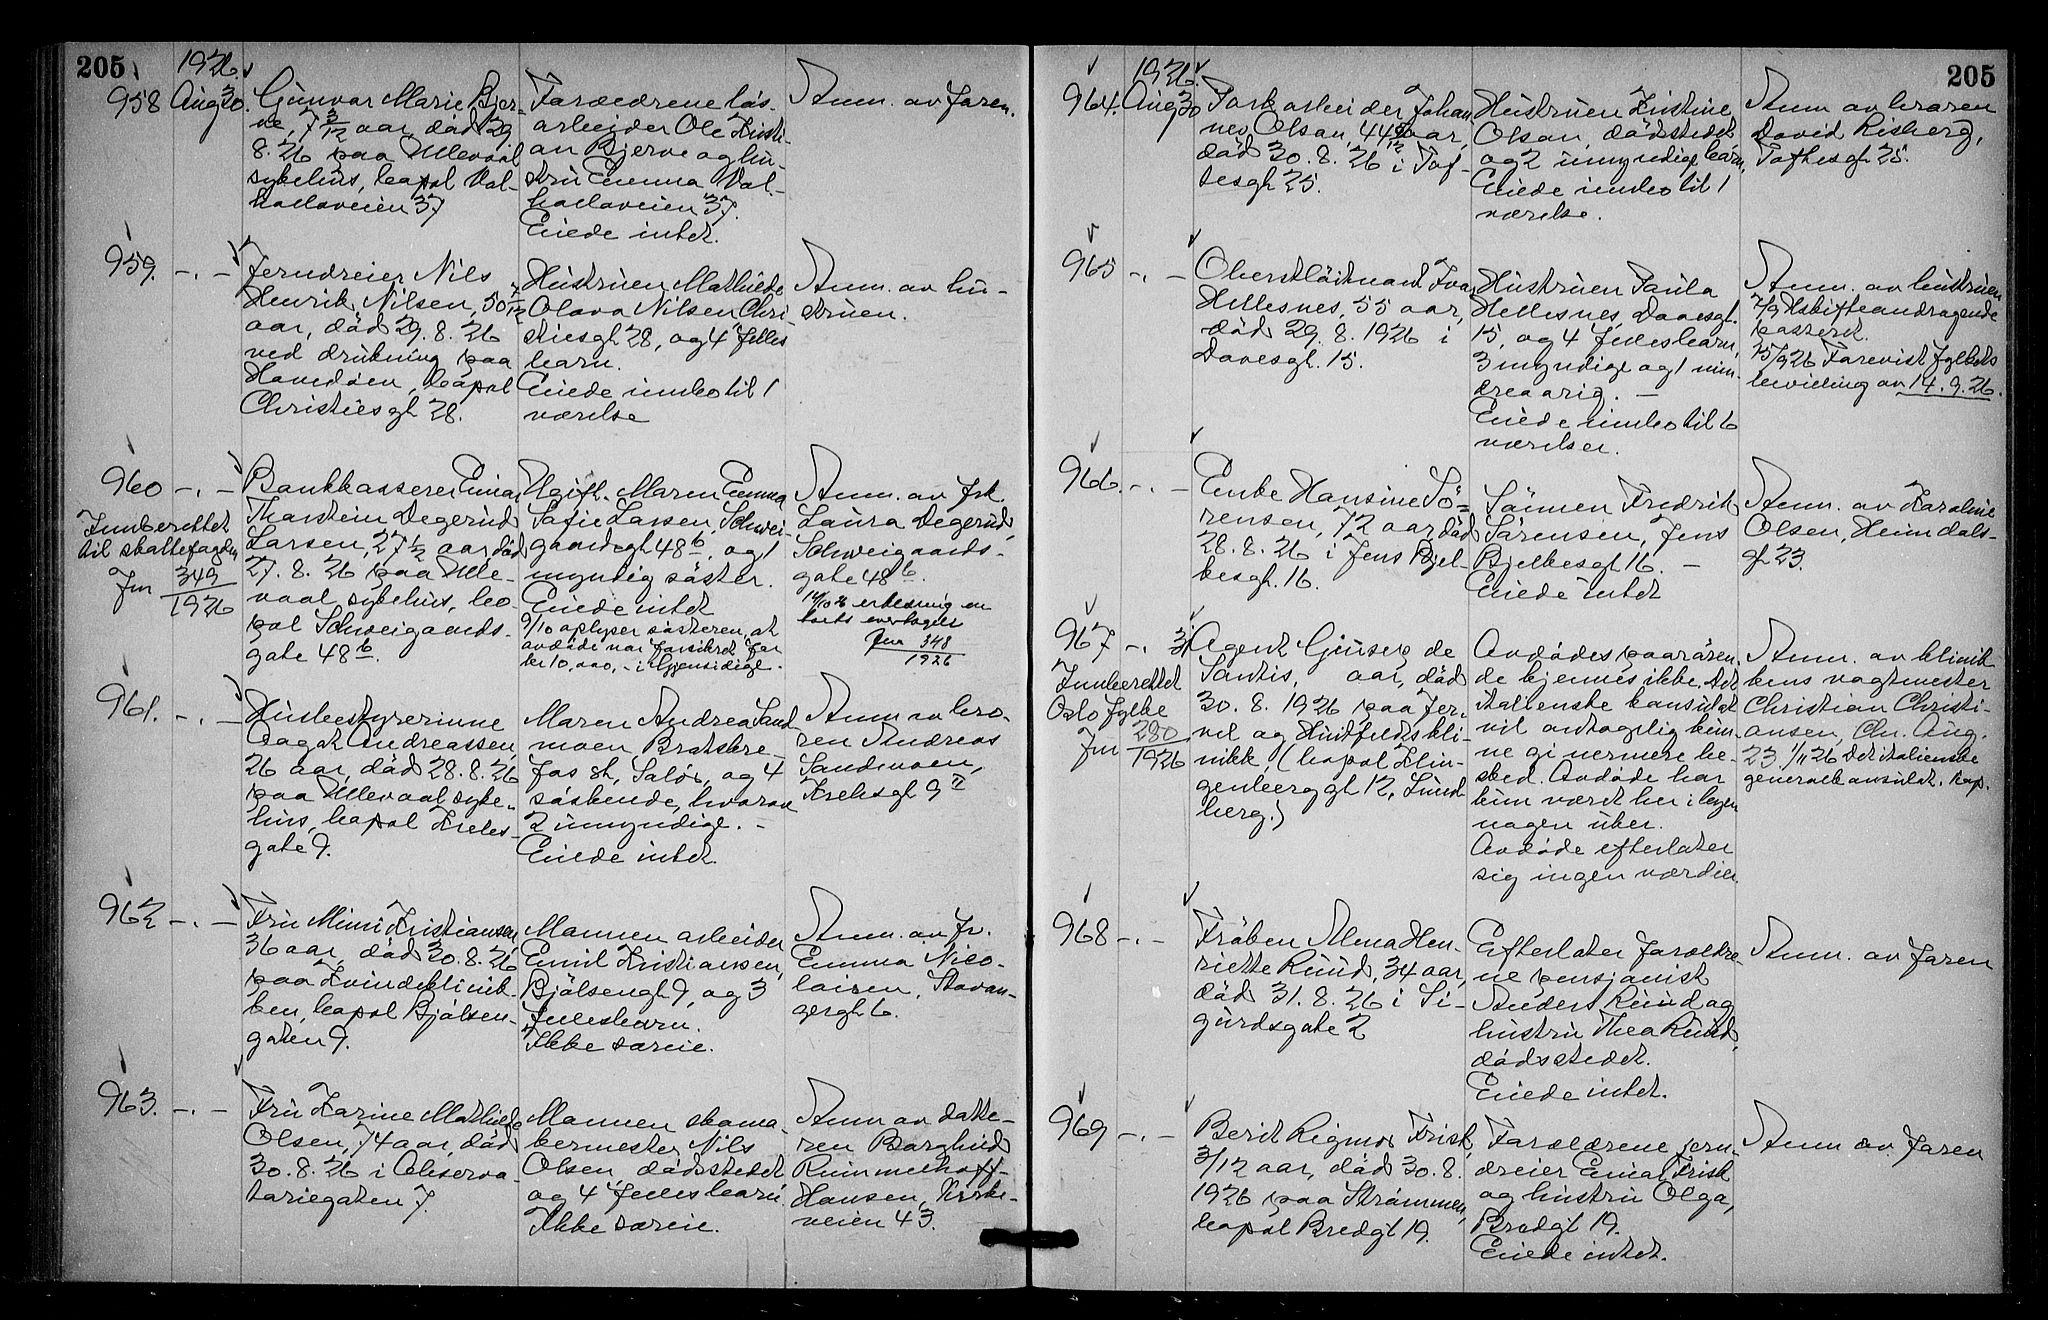 205
1926.
958
Aug 30.
Gunvor Marie Bjer-
ve, 7 3/12 aar, död 29.
8. 26 paa Ullevaal
sykehus, bopal Val-
hallaveien 37
Foræeldrene løs-
arbeider Ole Kristi-
an Bjerve og hu-
stru Emma Val-
hallaveien 37.
Eiede intet.
Anm. av faren.
959. -.-
Jerndreier Nils
Henrik Nilsen, 50 7/12
aar, död 29. 8. 26
ved drukning paa
Hovedöen, bopal
Christiesgt 28.
Hustruen Mathilde
Olava Nilsen Chri-
stiesgt 28, og 4 felles
barn.
Eiede innbo til 1
værelse
Anm. av hu-
struen.
960 -.-
Innberettet
til skattefogden
Jnr 349/1926
Bankkasserer Einar
Thorstein Degerud
Larsen, 27 1/2 aar död
27. 8. 26 paa Ulle-
vaal sykehus, bo-
pal Schweigaards-
gate 48 b.
Ugift. Maren Emma
Sofie Larsen, Schwei-
gaardsgt 48 b, og 1
myndig söster.
Eiede intet
9/10 oplyser sösteren, at
avdöde var forsikret for
kr 10,000,- i Gjensidige.
Anm. av frk.
Laura Degerud,
Schweigaards-
gate 48 b.
14/10 26 erklæring om
boets overtagelse
Jnr 348/1926
961. -.-
Husbestyrerinne
Aagot Andreassen,
26 aar, död 28. 8. 26
paa Ullevaal syke-
hus, bopal Krebs-
gate 9.
Maren Andrea Sand
moen Bratskre-
fos st, Solör, og 4
söskende, hvorav
2 umyndige. -
Eiede intet.
Anm av bro-
ren Andreas
Sandmoen,
Krebsgt 9 II
962 -.-
Fru Mimi Kristiansen
36 aar, död 30. 8. 26
paa Kvindeklinik-
ken, bopal Bjölsen-
gaten 9.
Mannen arbeider
Emil Kristiansen,
Bjölsengt 9, og 3
fellesbarn.
Ikke særeie.
Anm. av fr.
Emma Nico-
laisen, Stavan-
gergt 6.
963. -.-
Fru Karine Mathilde
Olsen, 74 aar, död
30. 8. 26 i Observa-
toriegaten 7.
Mannen skoma-
kermester Nils
Olsen, dödsstedet
og 4 fellesbarn.
Ikke særeie.
Anm av datte-
ren Borghild
Rummelhoff-
Hansen, Kirke-
veien 43.
205
1926.
964.
Aug 30
Fork arbeider Johan
nes Olsen, 44 aar,
död 30. 8. 26 i Tof-
tesgt 25.
Hustruen Kristine
Olsen, dödsstedet
og 2 umyndige barn.
Eiede innbo til 1
værelse.
Anm av broren
David Risberg,
Toftesgt 25.
965 -.-
Oberstlöitnant Ivar
Hellesnes, 55 aar,
död 29. 8. 1926 i
Daasgt. 15.
Hustruen Paula
Hellesnes, Daasgt.
15, og 4 fellesbarn,
3 myndige og 1 min-
dreaarig. -
Eiede innbo til 6
værelser.
Anm. av hustruen
7/9 Uskifteandragende
paateret.
25/9 26 Forevist fylkets
bevilling av 14. 9. 26.
966. -.-
Enke Hansine Sö-
rensen, 72 aar, död
28. 8. 26 i Jens Bjel-
kesgt. 16.
Sönnen Fredrik
Sörensen, Jens
Bjelkesgt 16. -
Eiede intet
Anm. av Karoline
Olsen, Heimdals-
gt 23.
967 -. 31
Innberettet
Oslo fylke
Jnr 280/1926
Agent Giusep de
Santis, aar, död
30. 8. 1926 paa Jer-
vel og Huitfeldts kli-
nikk (bopal Klin-
genberggt 12, Lund
berg.)
Avdödes paarören
de kjennes ikke. Det
italienske konsulat
vil antagelig kun-
ne gi nermere be-
sked. Avdöde har
kun været her i byen
nogen uker.
Avdöde efterlater
sig ingen værdier.
Anm. av klinik
kens vagtmester
Christian Christi-
ansen, Chr. Aug.
23. 1/11 26 Det italienske
generalkonsulat. Kop.
968 -.-
Fröken Alma Hen-
riette Ruud, 34 aar,
död 31. 8. 26 i Si-
gurdsgate 2
Efterlater foreldre-
ne pensjonist
Anders Ruud og
hustru Thea Ruud,
dödsstedet.
Eiede intet.
Anm. av faren
969 -.-
Berit Rigmor Frisk,
3/12 aar, död 30. 8.
1926 paa Strömmen,
bopal Bredgt 19.
Foræeldrene jern-
dreier Einar Frisk
og hustru Olga,
Bredgt 19.
Eiede intet.
Anm av faren